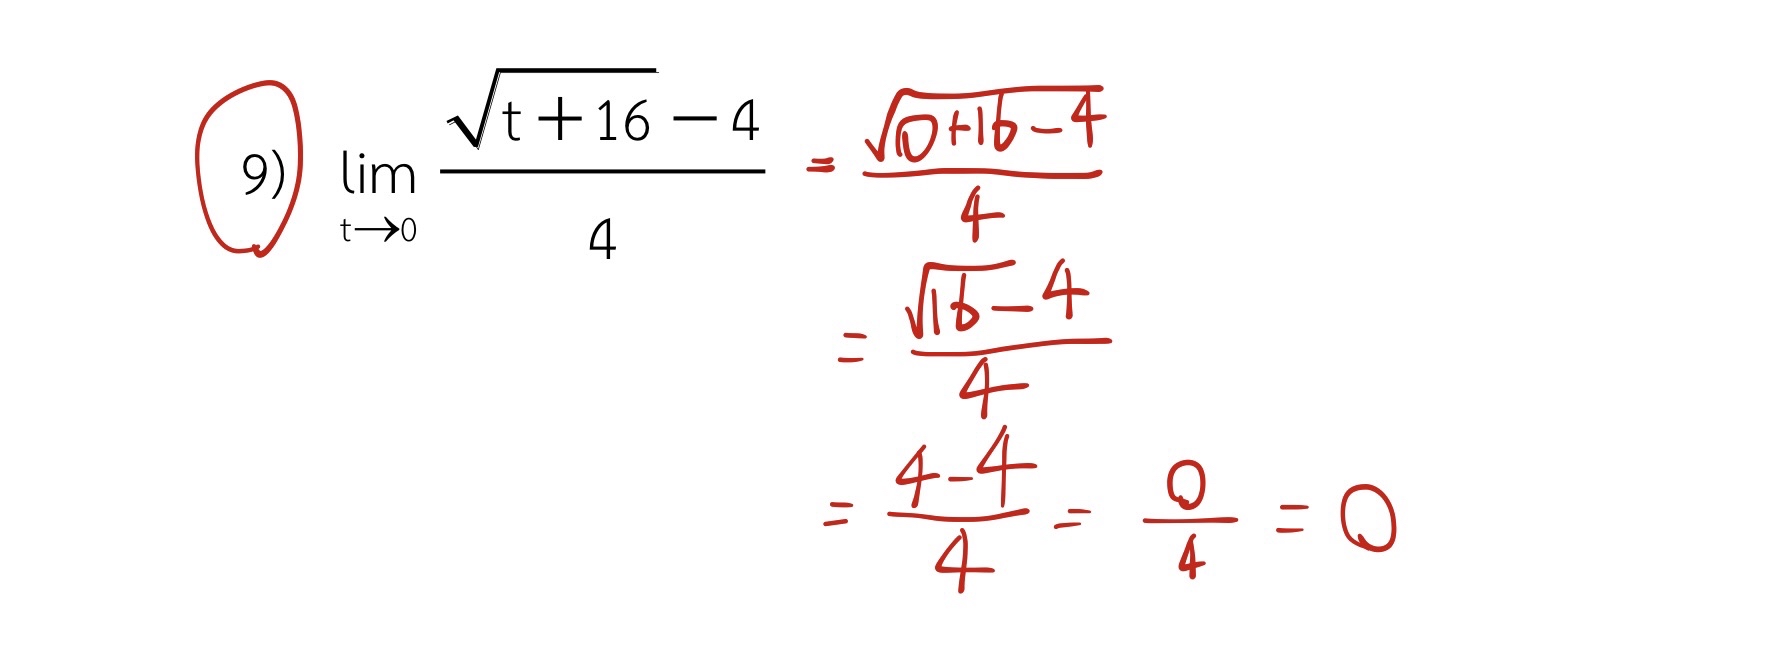 9) lim t→0 (√(t + 16) − 4)/4 = √(0+16−4)/4
= (√16 − 4)/4
= (4−4)/4 = 0/4 = 0